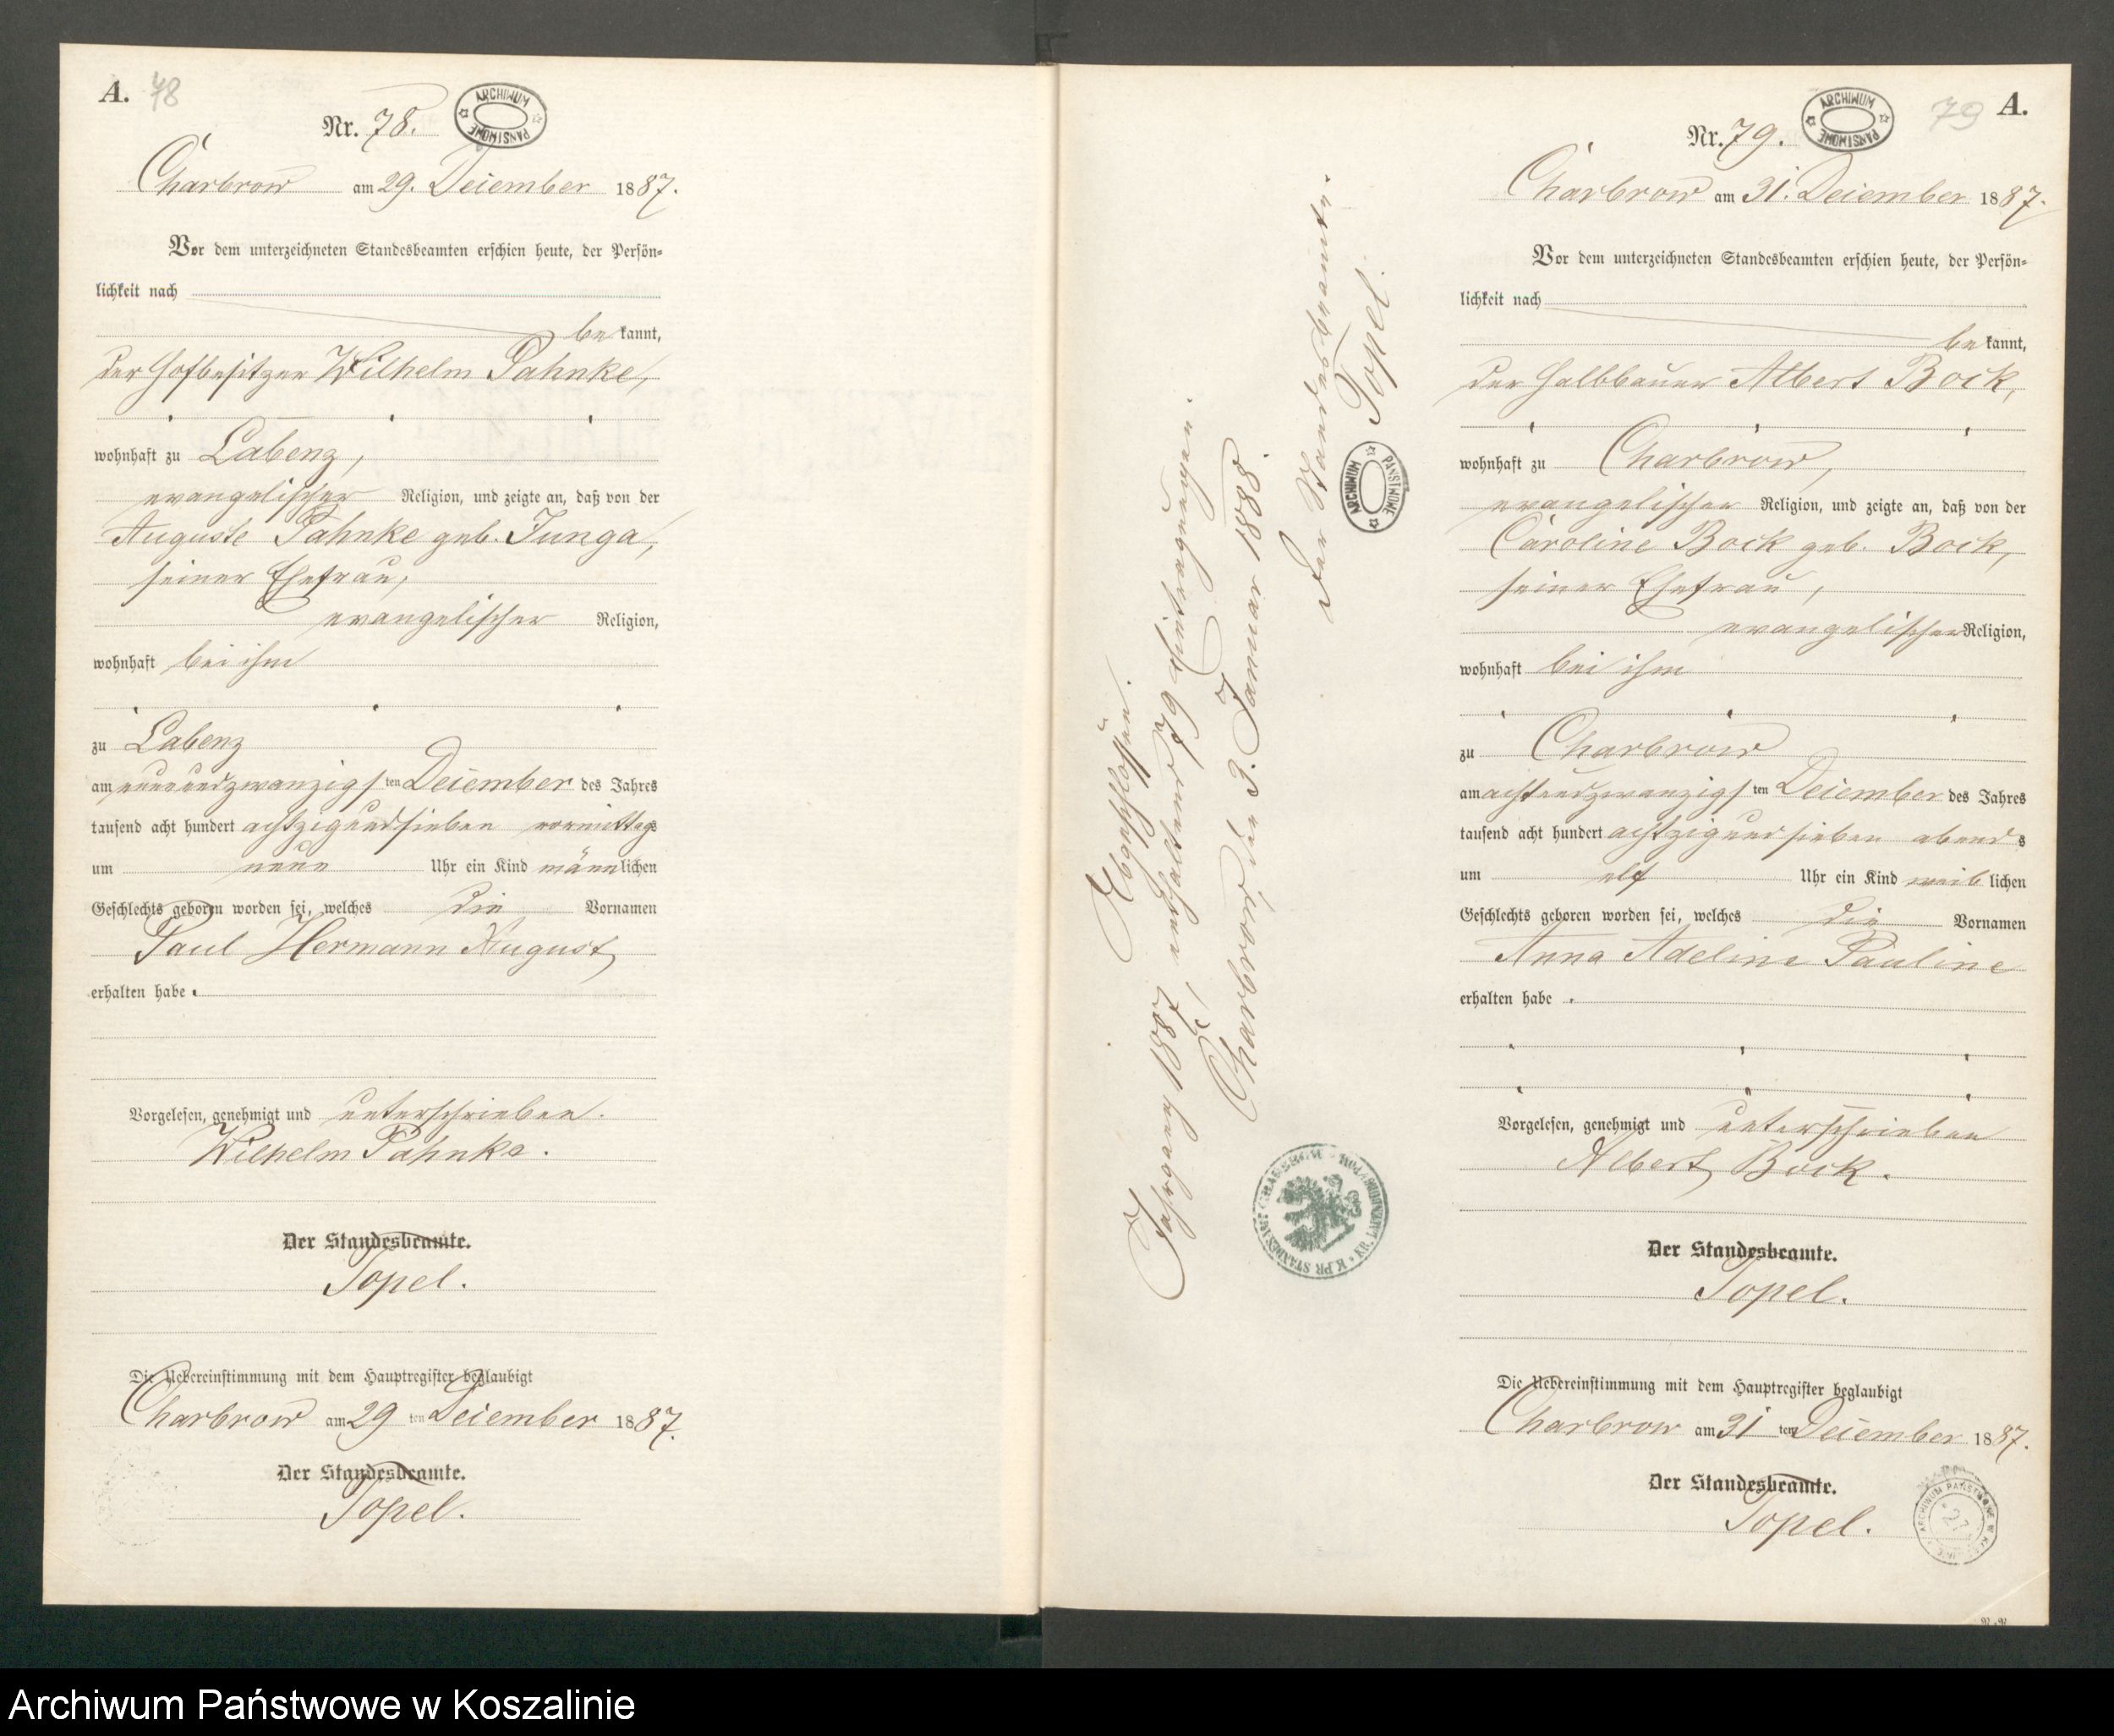 A. 78
Nr. 78.
ARCHIWUM PAŃSTWOWE
Charbrow am 29. Dezember 1887.
Vor dem unterzeichneten Standesbeamten erschien heute, der Persön=
lichkeit nach
be kannt,
der Hofbesitzer Wilhelm Pahnke,
wohnhaft zu Labenz,
evangelischer Religion, und zeigte an, daß von der
Auguste Pahnke geb. Junga,
seiner Ehefrau,
evangelischer Religion,
wohnhaft bei ihm
zu Labenz
am neunundzwanzigsten Dezember des Jahres
tausend acht hundert achtzigundsieben vormittags
um neun Uhr ein Kind männlichen
Geschlechts geboren worden sei, welches die Vornamen
Paul Hermann August
erhalten habe.
Vorgelesen, genehmigt und unterschrieben.
Wilhelm Pahnke.
Der Standesbeamte.
Topel.
Die Uebereinstimmung mit dem Hauptregister beglaubigt
Charbrow am 29 ten Dezember 1887.
Der Standesbeamte.
Topel.
Abgeschlossen.
Jahrgang 1887, enthaltend 79 Eintragungen.
Charbrow, den 3. Januar 1888.
Der Standesbeamte.
Topel.
ARCHIWUM PAŃSTWOWE
79 A.
Nr. 79.
ARCHIWUM PAŃSTWOWE
Charbrow am 31. Dezember 1887.
Vor dem unterzeichneten Standesbeamten erschien heute, der Persön=
lichkeit nach
be kannt,
der Halbbauer Albert Bock,
wohnhaft zu Charbrow,
evangelischer Religion, und zeigte an, daß von der
Caroline Bock geb. Bock,
seiner Ehefrau,
evangelischer Religion,
wohnhaft bei ihm
zu Charbrow
am achtundzwanzigsten Dezember des Jahres
tausend acht hundert achtzigundsieben abends
um elf Uhr ein Kind weiblichen
Geschlechts geboren worden sei, welches die Vornamen
Anna Adeline Pauline
erhalten habe.
Vorgelesen, genehmigt und unterschrieben
Albert Bock.
Der Standesbeamte.
Topel.
Die Uebereinstimmung mit dem Hauptregister beglaubigt
Charbrow am 31 ten Dezember 1887.
Der Standesbeamte.
Topel.
Archiwum Państwowe w Koszalinie